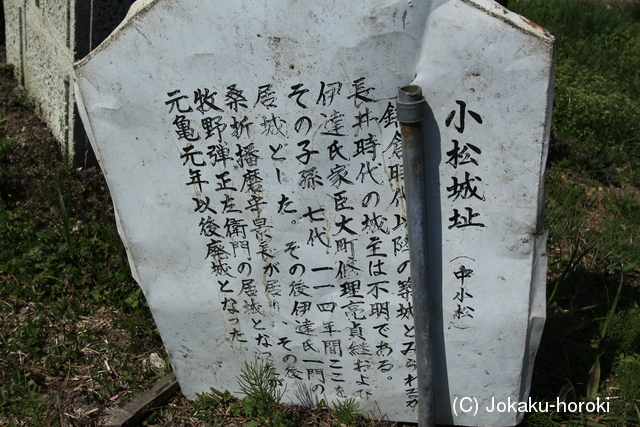 小松城址
(中小松)
鎌倉時代以降の築城とみられるが
長井時代の城主は不明である。
伊達氏家臣大町修理亮貞継および
その子孫七代、一一四年間ここを
居城とした。その後伊達氏一門の
桑折播磨守景長が居り、その後
牧野弾正左衛門の居城となったが
元亀元年以後廃城となった。
(C) Jokaku-horoki